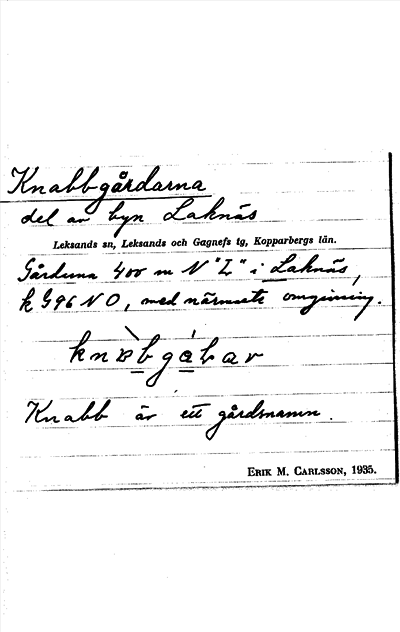 Knabbgårdarna
del av byn Laknäs
Leksands sn, Leksands och Gagnefs tg, Kopparbergs län.
Gårdarna 400 m N "L" i Laknäs,
k G96 NO, med närmaste omgivning.
Knabb är ett gårdsnamn.
ERIK M. CARLSSON, 1935.